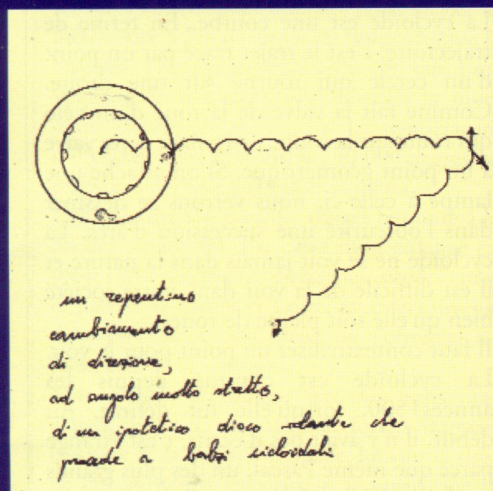 un repentino
cambiamento
di direzione,
ad angolo molto stretto,
di un ipotetico disco volante che
procede a balzi cicloidali